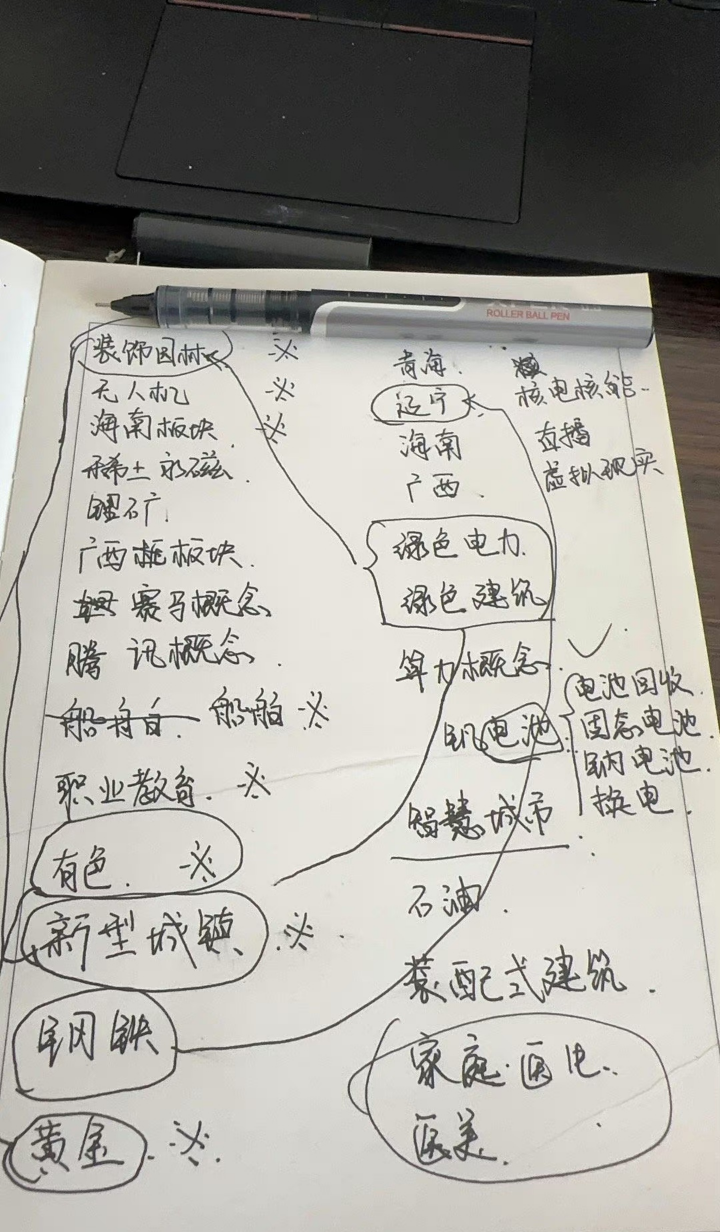 ROLLER BALL PEN
装饰园林
无人机
海南板块
稀土永磁
锂石广
广西板块
赛马概念
腾讯概念
船舶
职业教育
有色
新型城镇
钢铁
黄金
青海
辽宁
海南
广西
绿色电力
绿色建筑
算力概念
钒电池
智慧城市
石油
装配式建筑
家庭医生
医美
核电核能
直播
虚拟现实
电池回收
固态电池
钠电池
换电